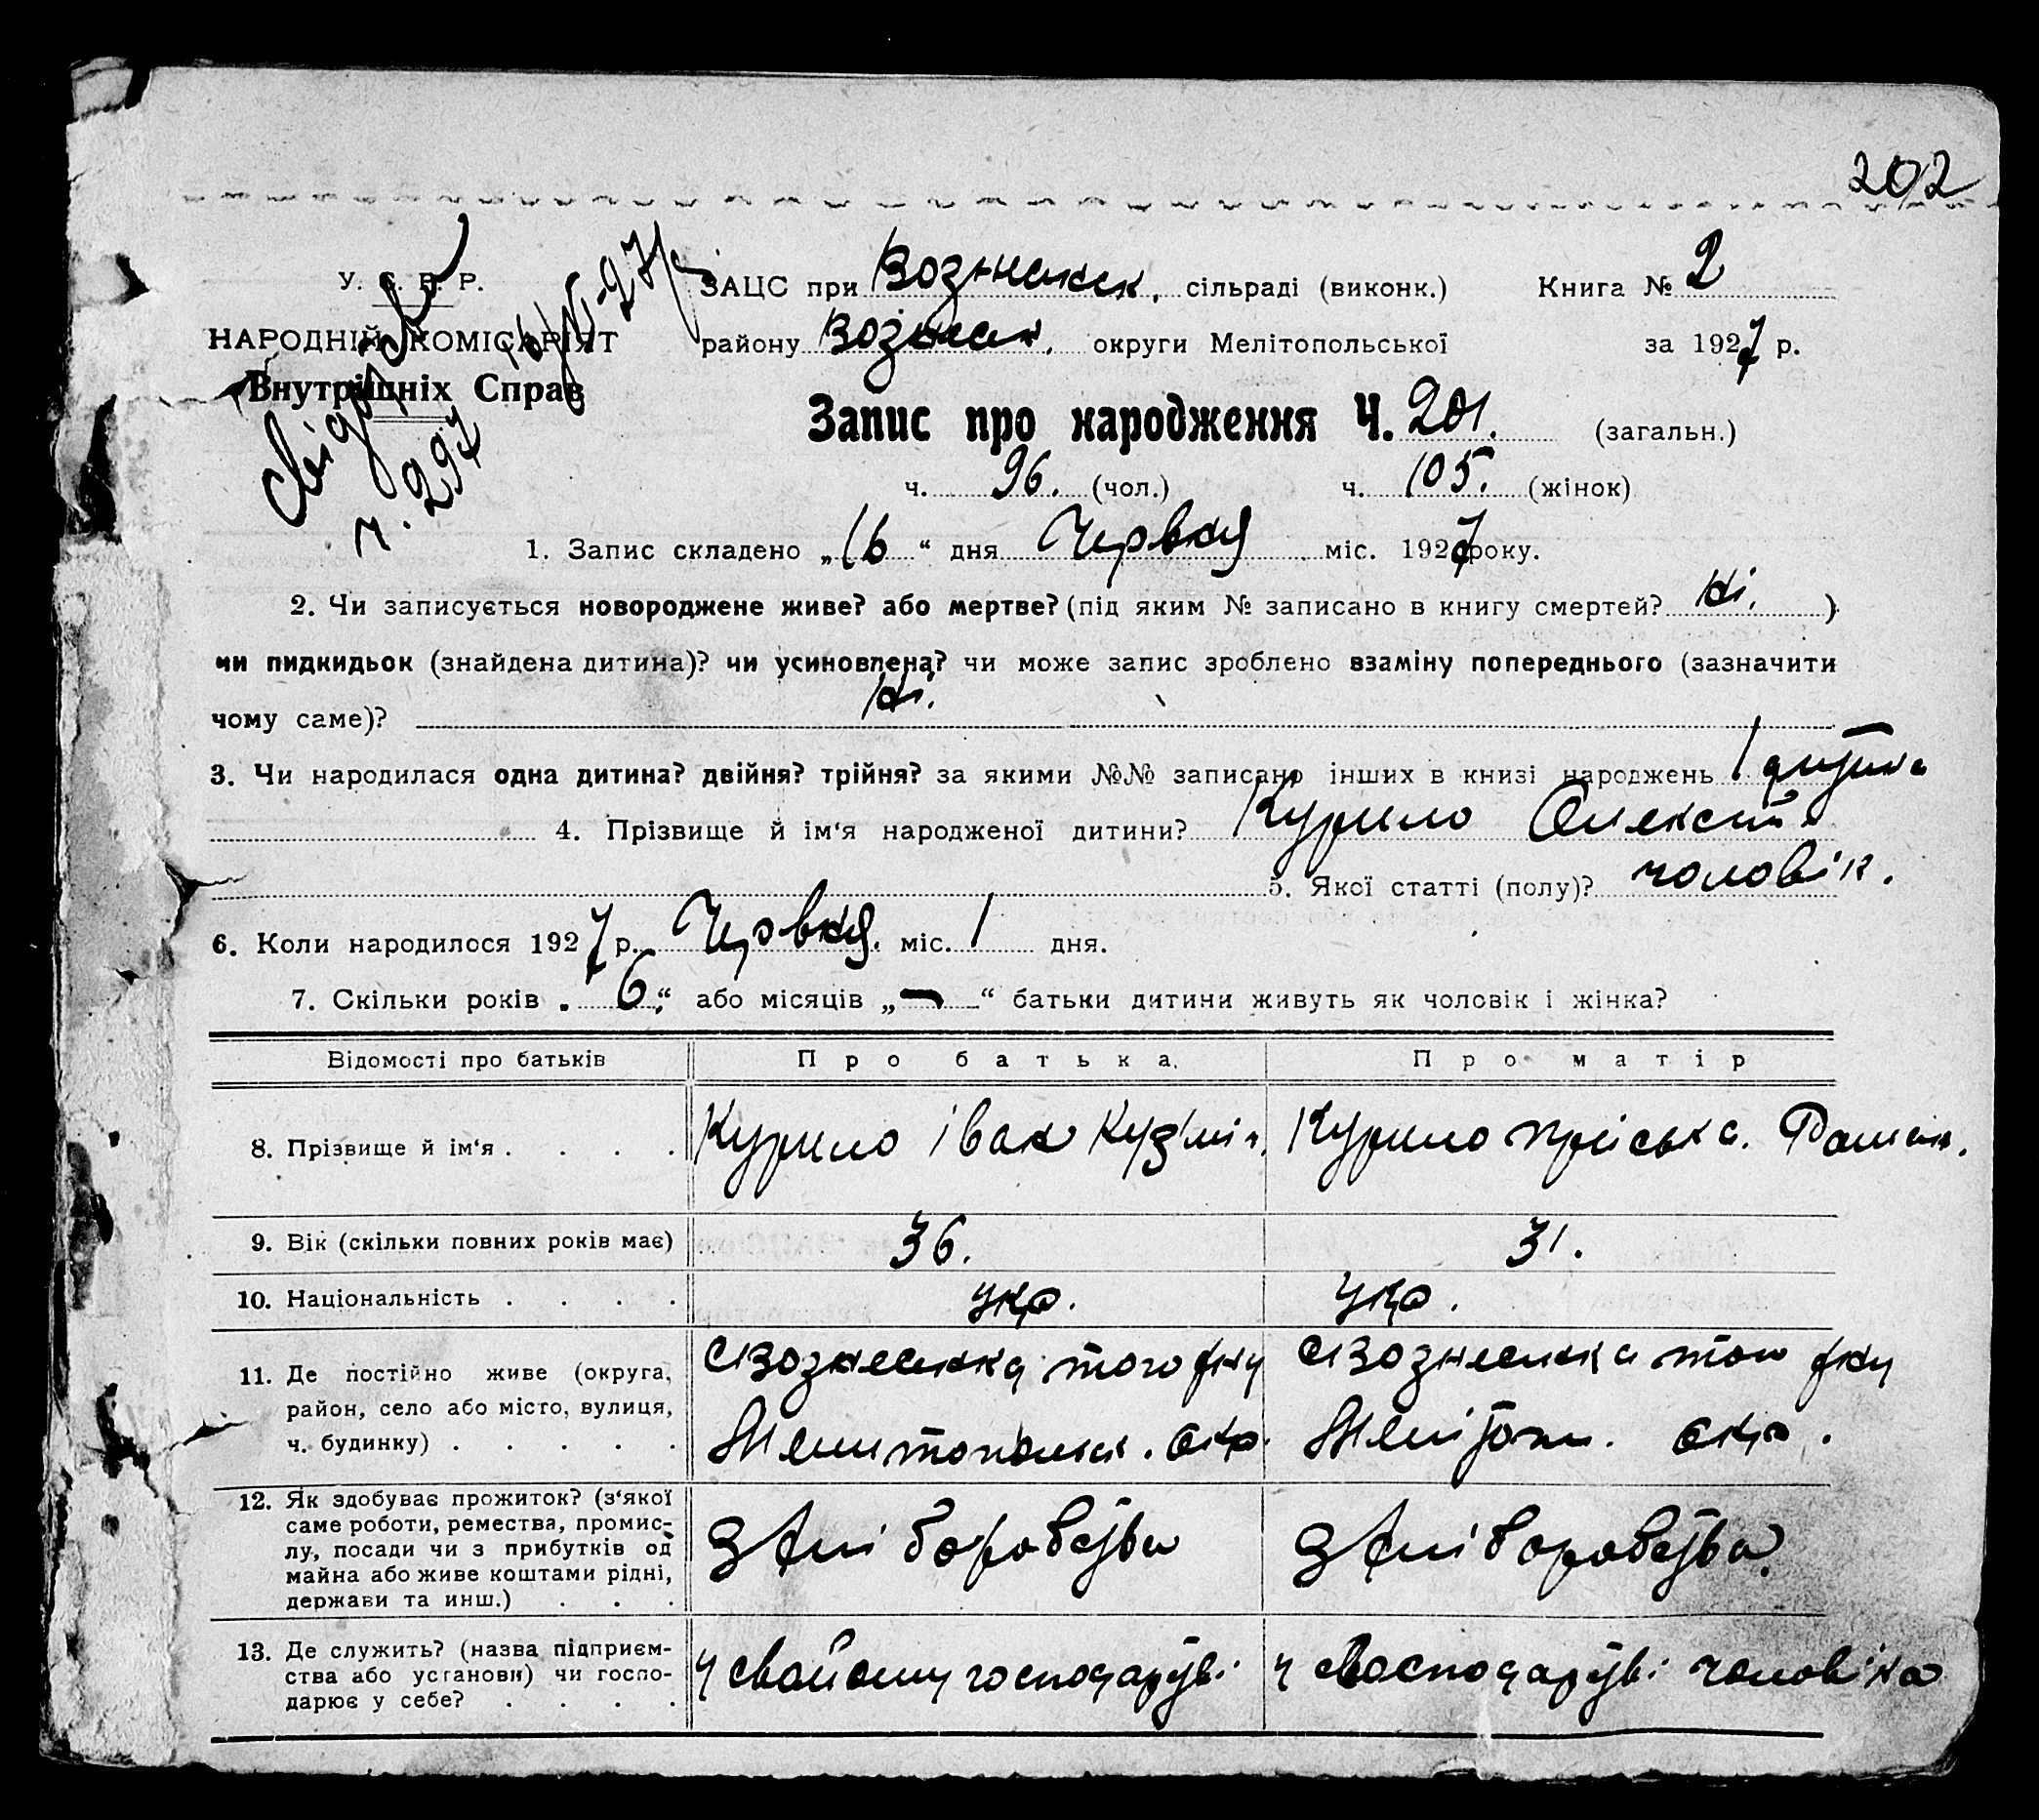 202
У. С. Р. Р.
НАРОДНІЙ КОМІСАРІЯТ
Внутрішніх Справ
ч. 297
ЗАЦС при Вознесенск. сільраді (виконк.) Книга № 2
району Вознесен. округи Мелітопольської за 1927 р.
Запис про народження Ч. 201. (загальн.)
ч. 96. (чол.) ч. 105. (жінок)
1. Запис складено „16“ дня Червня міс. 1927 року.
2. Чи записується новороджене живе? або мертве? (під яким № записано в книгу смертей? Ні. )
чи пидкидьок (знайдена дитина)? чи усиновлена? чи може запис зроблено взаміну попереднього (зазначити
чому саме)? Ні.
3. Чи народилася одна дитина? двійня? трійня? за якими №№ записано інших в книзі народжень 1 дитина
4. Прізвище й ім‘я народженої дитини? Курило Олексій
5. Якої статті (полу)? чоловік.
6. Коли народилося 1927 р. Червня. міс. 1 дня.
7. Скільки років „ 6 “ або місяців „ — “ батьки дитини живуть як чоловік і жінка?
Відомості про батьків Про батька. Про матір
8. Прізвище й ім‘я . . . . Курило Іван Кузьміч. Курило Пріська.
9. Вік (скільки повних років має) 36. 31.
10. Національність . . . . укр. укр.
11. Де постійно живе (округа, район, село або місто, вулиця, ч. будинку) . . . . . с Вознесенка того р-ну Мелитопольск. окр. с Вознесенка того р-ну Меліtоп. окр.
12. Як здобуває прожиток? (з‘якої саме роботи, ремества, промислу, посади чи з прибутків од майна або живе коштами рідні, держави та инш.) . . . З хліборобства З хліборобства
13. Де служить? (назва підприємства або установи) чи господарює у себе? . . . . у свойому господарстві у господарстві чоловіка